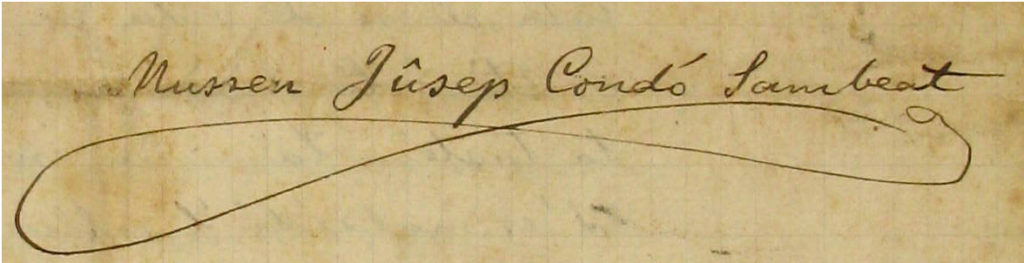 Mussen Jûsep Condó Sambeat